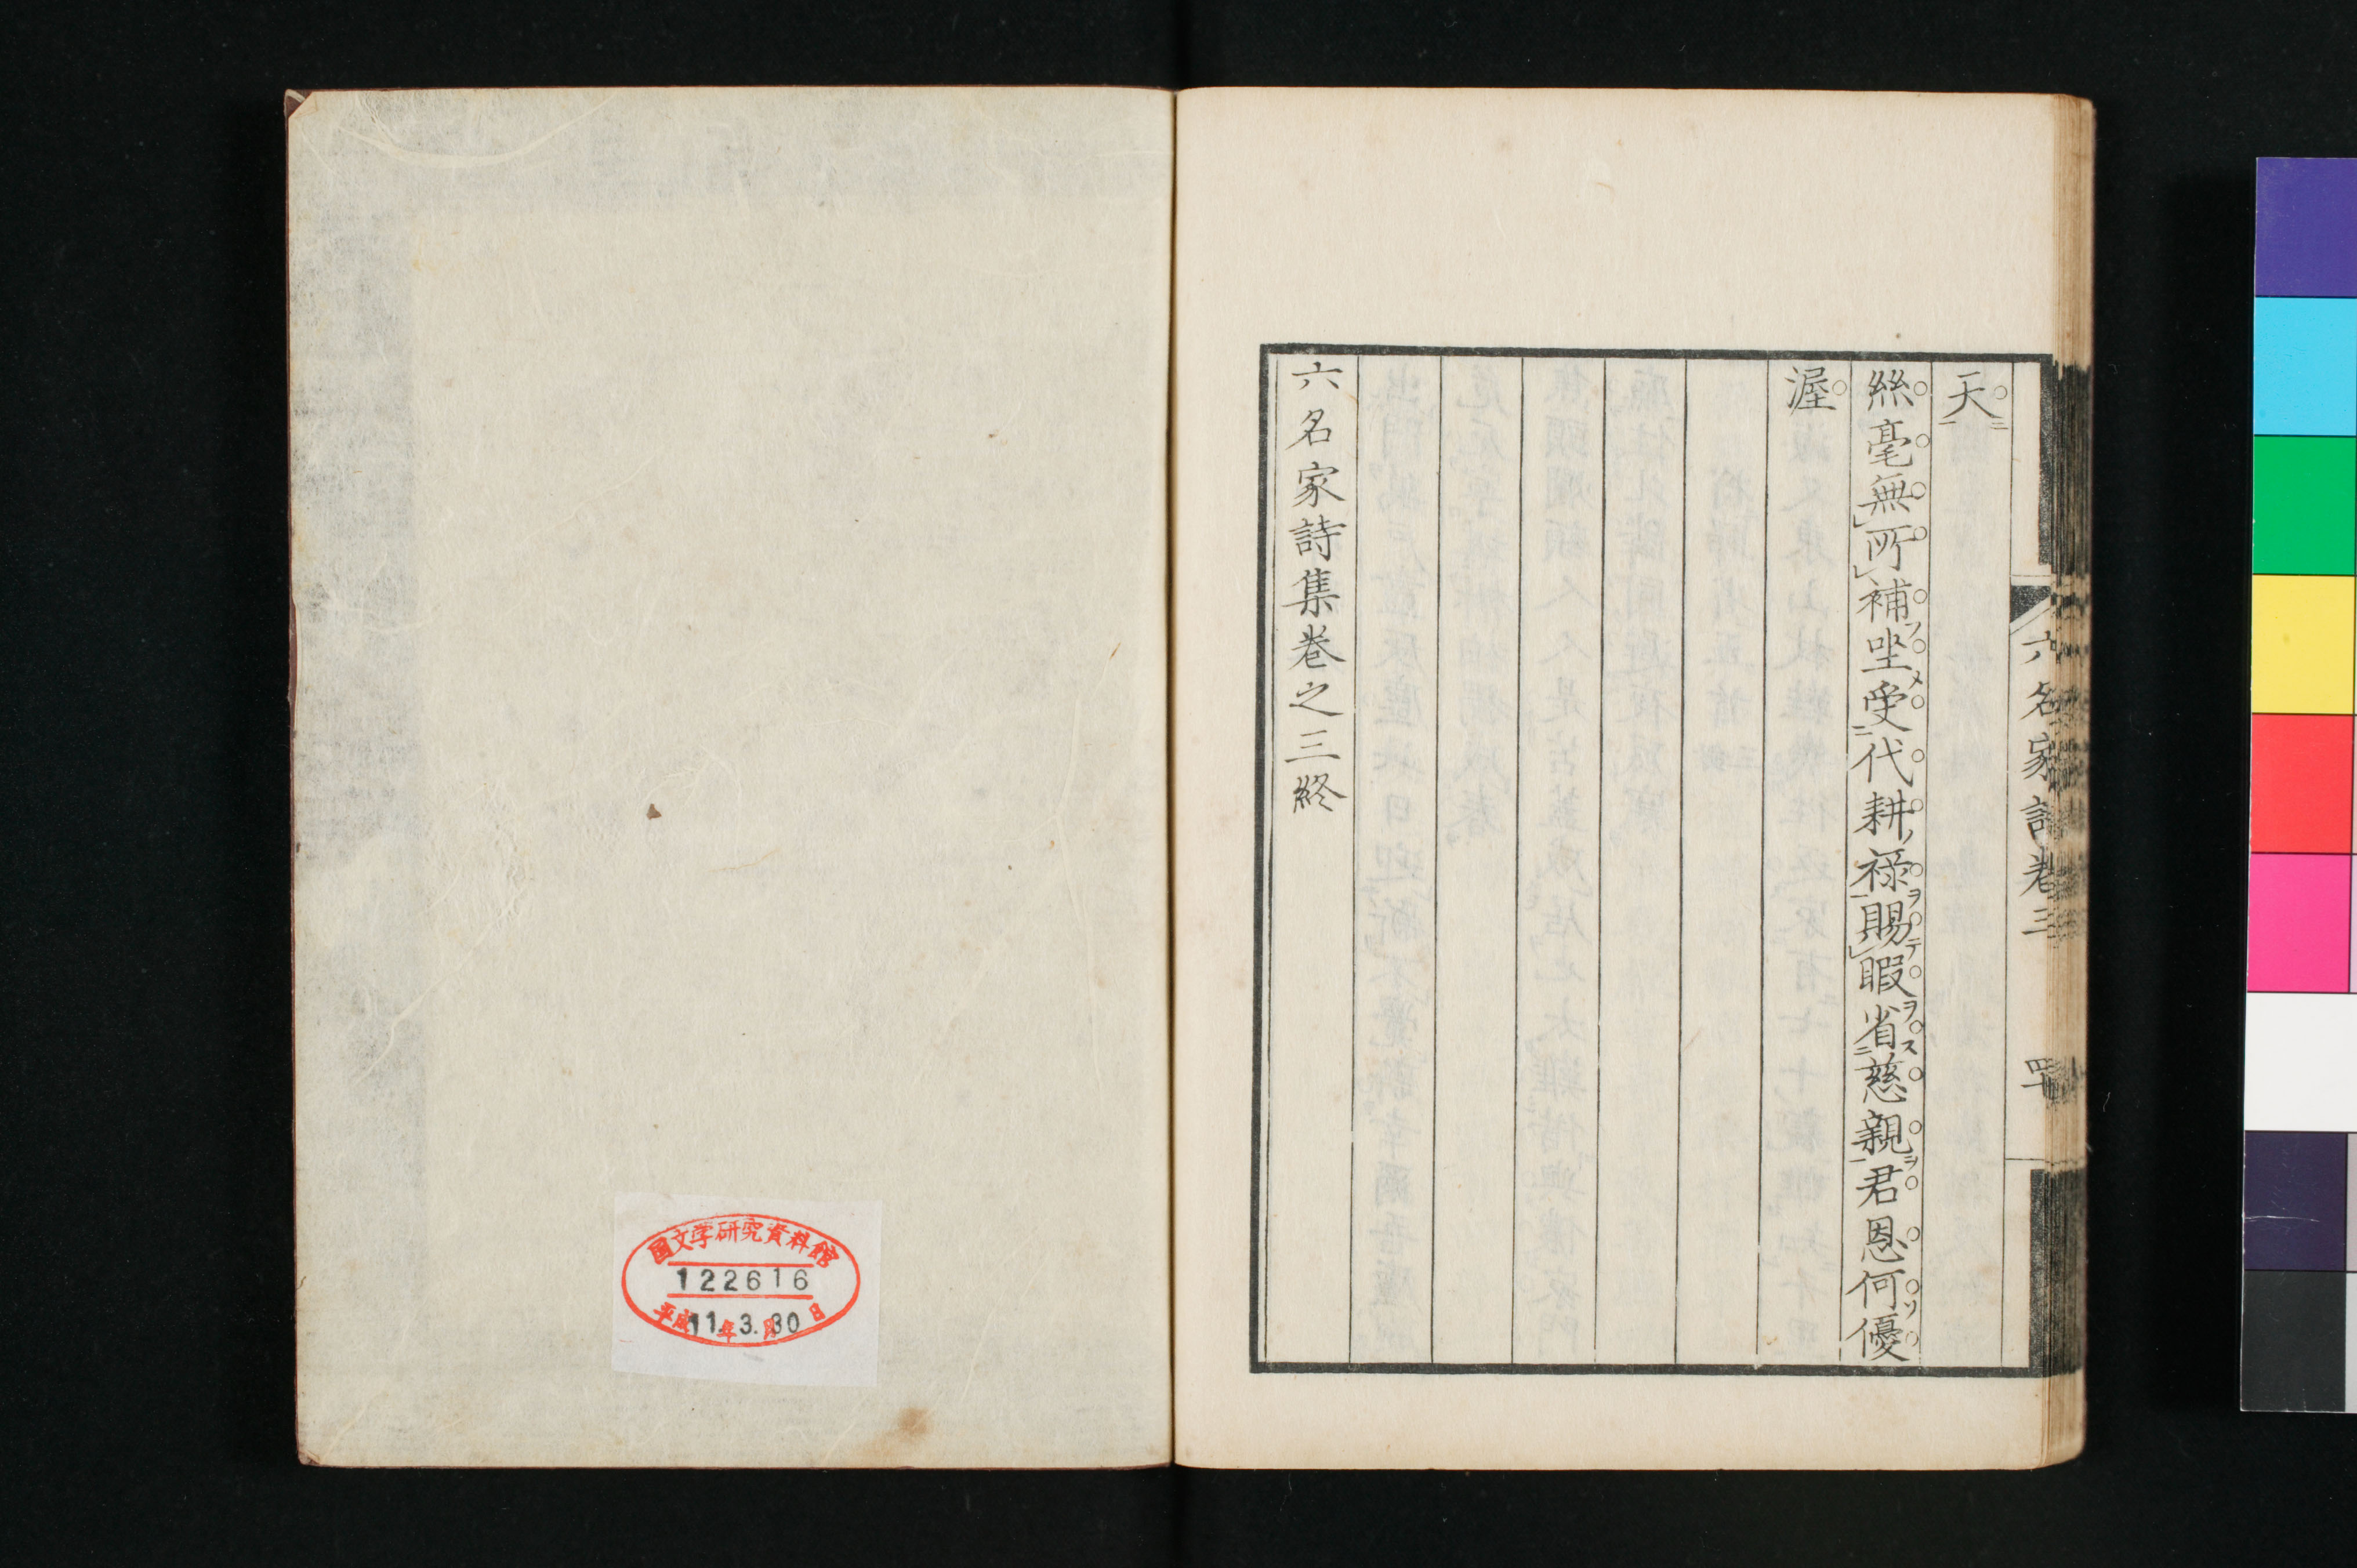 天
絲毫無所補坐受代耕祿賜暇省慈親君恩何優
渥
六名家詩集卷之三終
六名家詩卷三
四十
国文学研究資料館
122616
平成11年3月30日